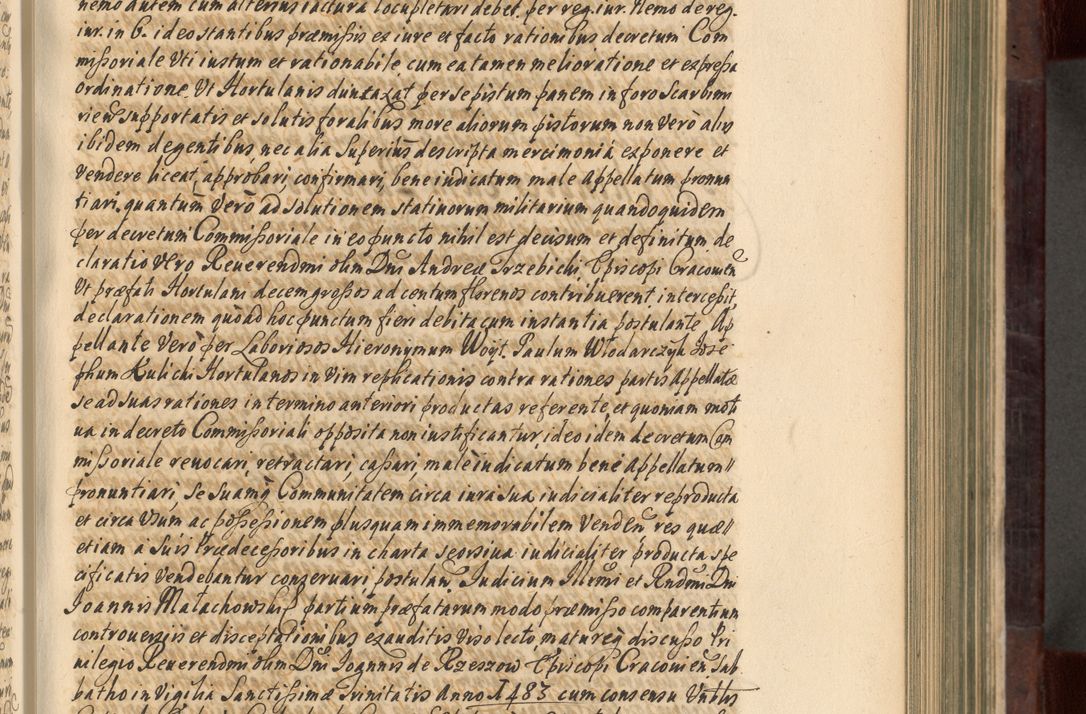 nemo autem cum alterius iactura locupletari debet. per reg. iur. Nemo de reg.
iur. in 6. ideo stantibus præmissis ex iure et facto rationibus decretum Com
missoriale Uti iustum et rationabile, cum ea tamen melioratione et expressa
ordinatione. Ut Hortulanis duntaxat per se pistum panem in foro Scarbimi
rien supportatis et solutis foralibus more aliorum pistorum non verò alijs
ibidem degentibus, nec alia Superiùs descripta mercimonia exponere et
Vendere liceat, approbari, confirmari, bene iudicatum male Appellatum pronun
tiari. quantum Verò ad solutionem statiuorum militarium quandoquidem
per decretum Commissoriale in eo puncto nihil est decisum et definitum de
claratio Vero Reuerendmi olim Dni Andreæ Trzebicki, Episcopi Cracouien
Ut præfati Hortulani decem grossos ad centum florenos contribuerent intercessit,
declarationem quò ad hoc punctum fieri debita cum instantia postulante, Ap
pellante Verò per Laboriosos Hieronymum Woyt. Paulum Włodarczyk Jose
phum Kulichi Hortulanos in Vim replicationis contra rationes partis Appellatæ
se ad suas rationes in termino anteriori productas referente, et quoniam moti
ua in decreto Commissoriali opposita non iustificantur, ideo idem decretum Com
missoriale reuocari, retractari, cassari, male iudicatum bene Appellatum
pronuntiari, se Suamq Communitatem circa iura sua iudicialiter reproducta
et circa Usum ac possessionem plusquam immemorabilem Venden res quæ
etiam à Suis Prædecessoribus in charta seorsiua iudicialiter producta spe
cificatis Vendebantur conzeruari, postulan. Judicium Illrmi et Rndmi Dni
Joannis Małachowski partium præfatarum modo præmisso comparentium
controuersijs et disceptationibus exauditis Viso lecto, matureq discusso Pri
uilegio Reuerendmi olim Dni Joannis de Rzeszow Episcopi Cracouien Sab
batho in Vigilia Sanctissimæ Trinitatis Anno 1483 cum consensu